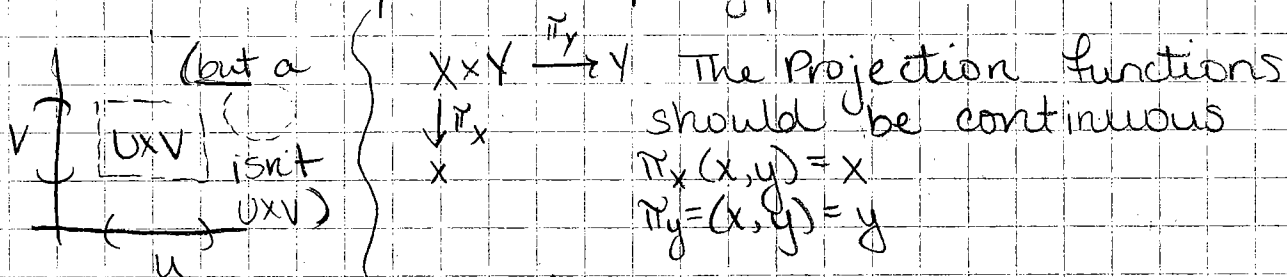 (but a
V
U×V
isn't
U×V)
U
X×Y →^{π_Y} Y
↓π_X
X
The Projection functions
should be continuous
π_X (x,y) = x
π_Y=(x,y) = y